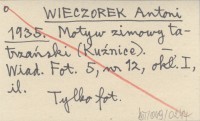 WIECZOREK Antoni
1935. Motyw zimowy ta-
trzański (Kuźnice). —
Wiad. Fot. 5, nr 12, okl. I,
il.
Tylko fot.